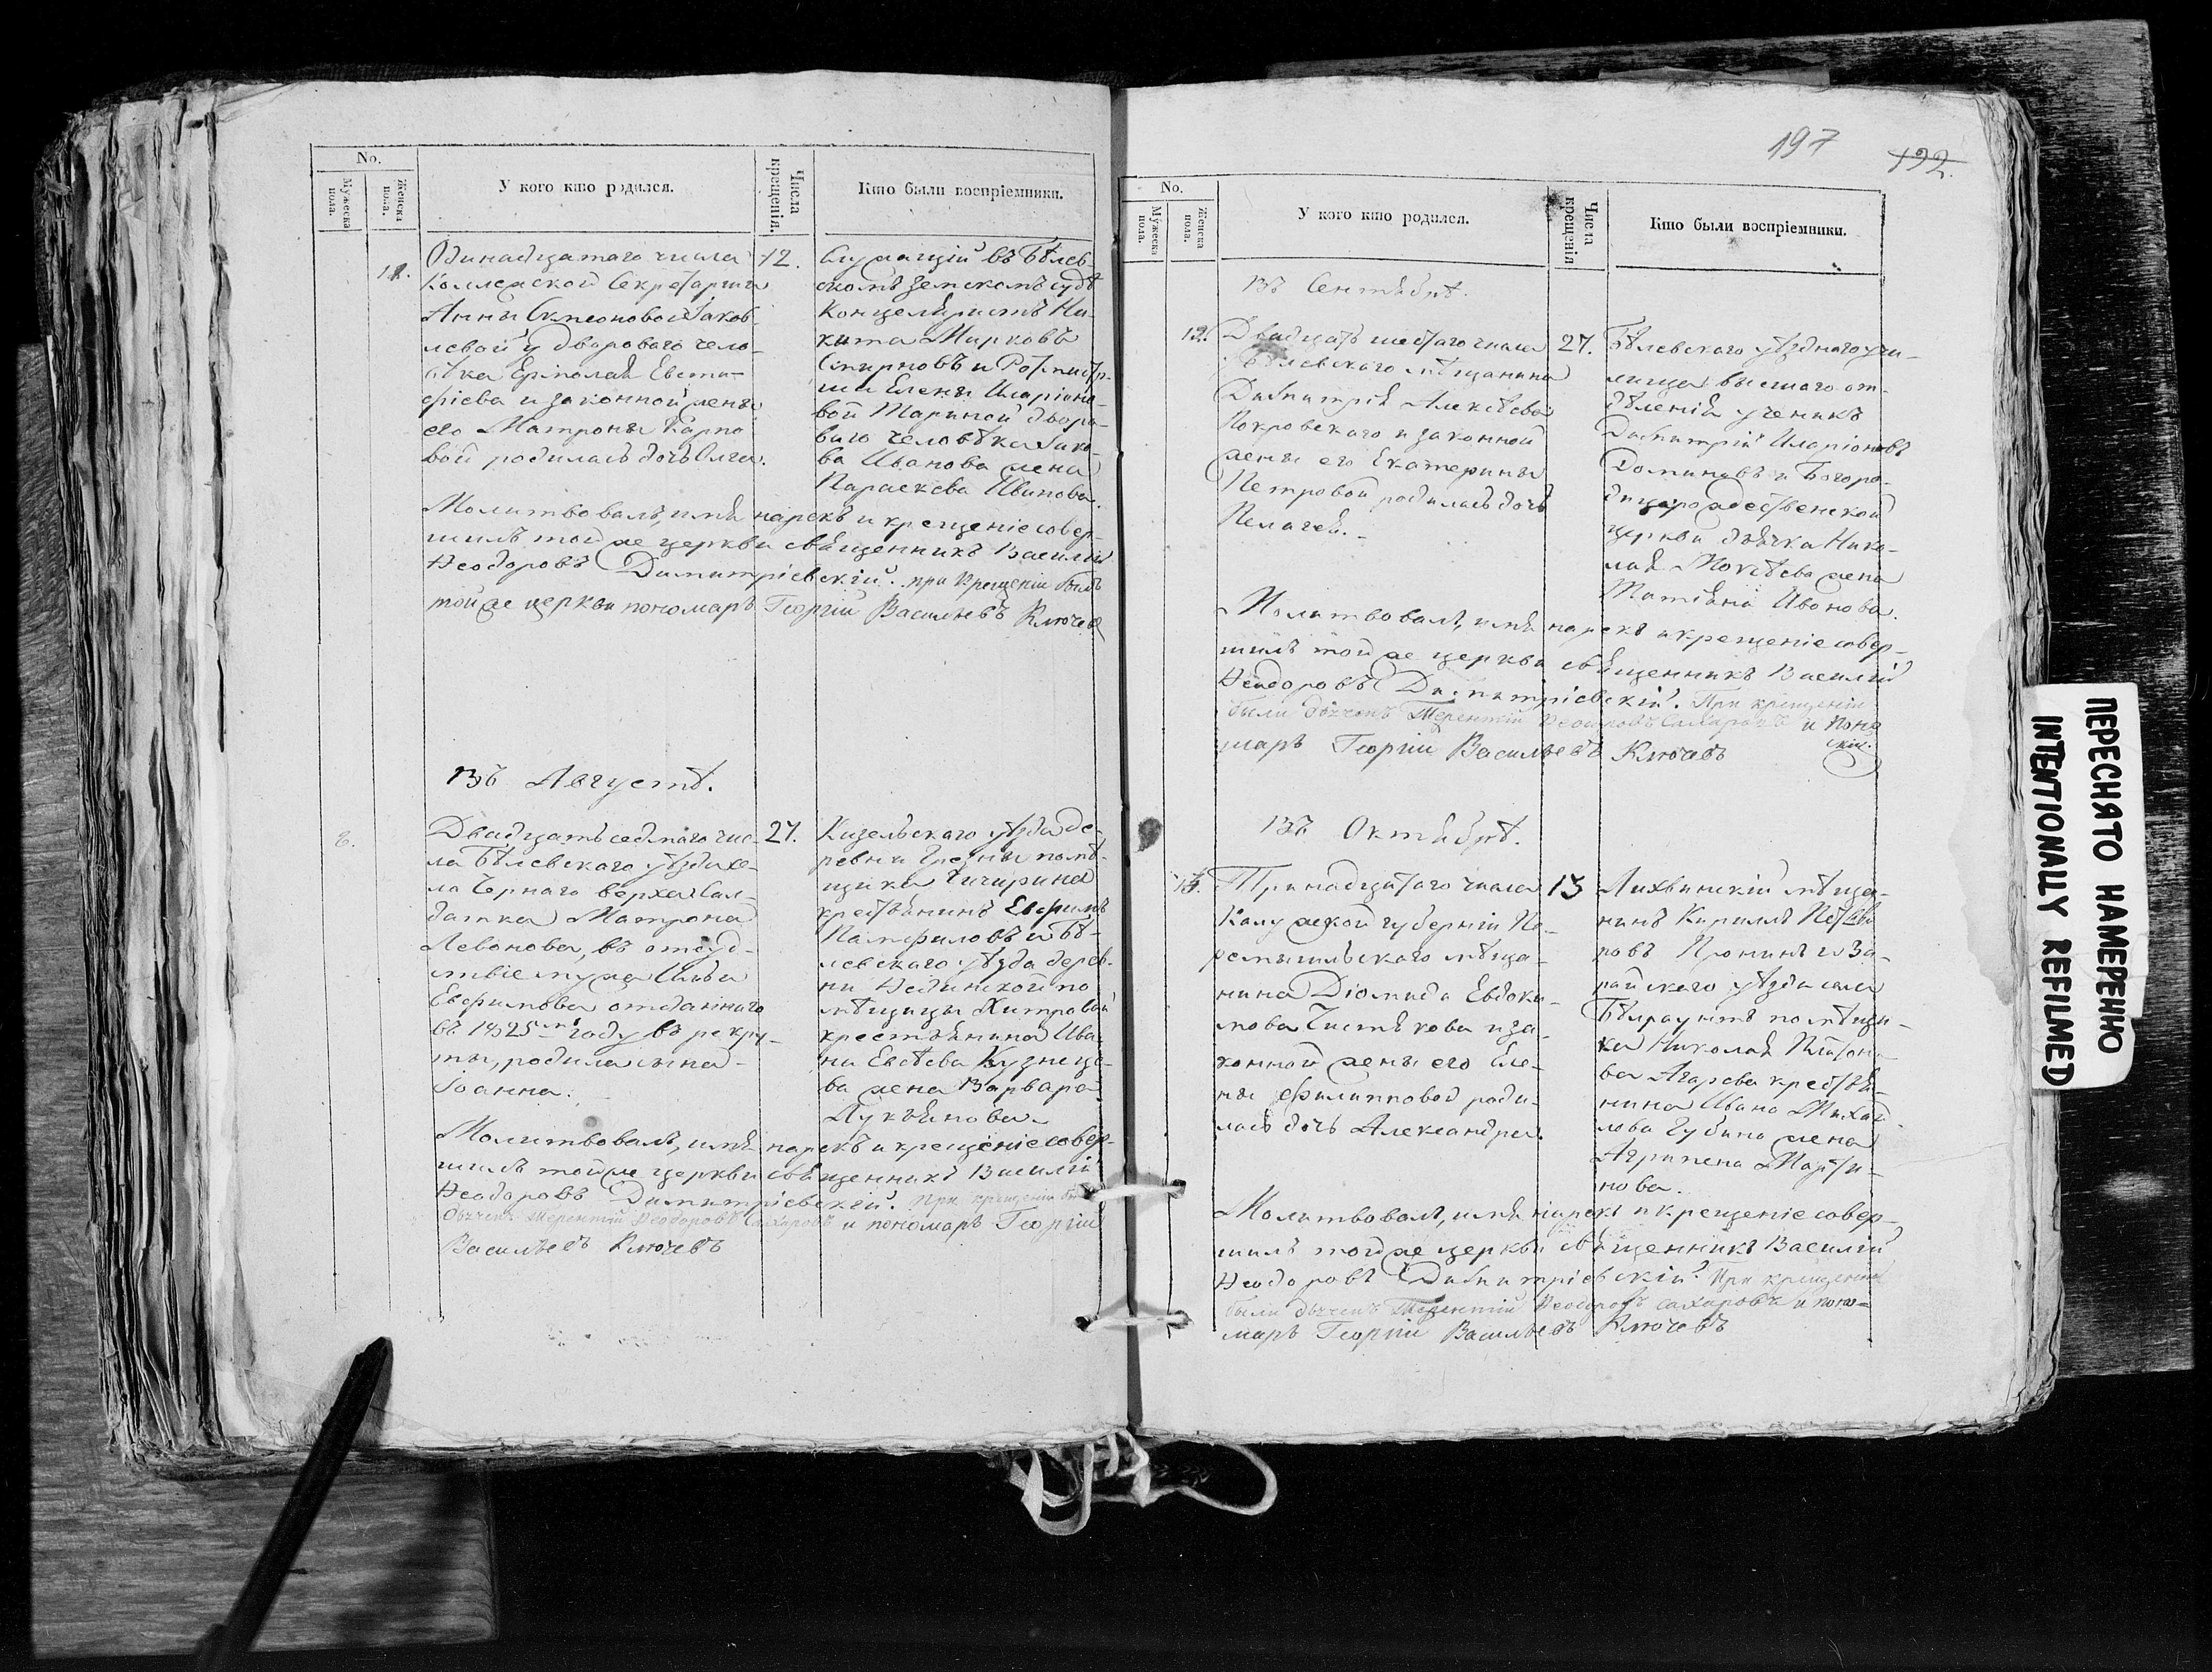 No.
Мужеска пола.
Женска пола.
У кого кто родился.
Числа крещенія.
Кто были воспріемники.
11.
Одинадцатаго числа
Коллежской Секретарши
Анны Симеоновой Яков-
левой у двороваго чело-
вѣка Ермолая Евста-
фіева и законной жены
его Матроны Карпо
вой родилась дочь Ольга.
12.
Служащій въ Бѣлев-
скомъ земскомъ судѣ
Концеляристъ Ни-
кита Марковъ
Смирновъ и Ротмистр-
ши Елены Иларіоно-
вой двора-
ваго человѣка Яко-
ва Иванова жена
Параскева Иванова.
Молитвовалъ, имя нарекъ и крещеніе совер-
шилъ той же церкви священникъ Василій
Ѳеодоровъ Димитріевскій. при Крещеніи былъ
той же церкви пономарь Георгій Васильевъ Ключев
Въ Августѣ.
8.
Двадцать седмаго чис-
ла Бѣлевского уѣзда се-
ла Чернаго верха Сол-
датка Матрона
Левонова, въ отсуд-
ствіе мужа Ильи
Евфимова отданнаго
въ 1825мъ году въ рекру-
ты, родила сына
Іоанна.
27.
Козельскаго уѣзда де-
ревни помѣ-
щика Чичерина
крестьянинъ Евфимъ
Памфиловъ и Бѣ-
левскаго уѣзда дерев-
ни по
мѣщицы Хитровой
крестьянина Ива-
на Евсѣева Кузнецо-
ва жена Варвара
Лукьянова.
Молитвовалъ, имя нарекъ и крещеніе совер-
шилъ той же церкви священникъ Василій
Ѳеодоровъ Димитріевскій. При крещеніи бы
дьячекъ Терентій Ѳеодоровъ Сахаровъ и пономарь Георгій
Васильевъ Ключевъ
197
192.
No.
Мужеска пола.
Женска пола.
У кого кто родился.
Числа крещенія
Кто были воспріемники.
Въ Сентябрѣ.
12.
Двадцать шестаго числа
Бѣлевскаго мѣщанина
Димитрія Алексѣева
Покровскаго и законной
жены его Екатерины
Петровой родилась дочь
Пелагея.
27.
Бѣлевскаго уѣзднаго учи-
лища высшаго от-
дѣленія ученикъ
Димитрій Иларіоновъ
и Богоро-
дицерождественской
церкви дьячка Нико-
лая Моисѣева жена
Татіяна Иванова.
Молитвовалъ, имя нарекъ и крещеніе совер-
шилъ той же церкви священникъ Василій
Ѳеодоровъ Димитріевскій. При крещеніи
были дьячекъ Терентій Ѳеодоровъ Сахаровъ и Поно
марь Георгій Васильевъ Ключевъ
Въ Октябрѣ.
13.
Тринадцатаго числа
Калужской губерніи Пе-
ремышльскаго мѣща-
нина Діомида Евдоки-
мова Чистякова и за-
конной жены его Еле-
ны Филипповой роди-
лась дочь Александра.
13
Лихвинскій мѣща-
нинъ Кирилъ
Пронинъ и За-
райскаго уѣзда села
помѣщи-
ка Николая Платоно-
ва Агарева крестья-
нина Ивана Михай
лова Губина жена
Агрипена Марти-
нова.
Молитвовалъ, имя нарекъ и крещеніе совер-
шилъ той же церкви священникъ Василій
Ѳеодоровъ Димитріевскій. При крещеніи
были дьячекъ Терентій Ѳеодоровъ Сахаровъ и поно-
марь Георгій Васильевъ Ключевъ
ПЕРЕСНЯТО НАМЕРЕННО
INTENTIONALLY REFILMED